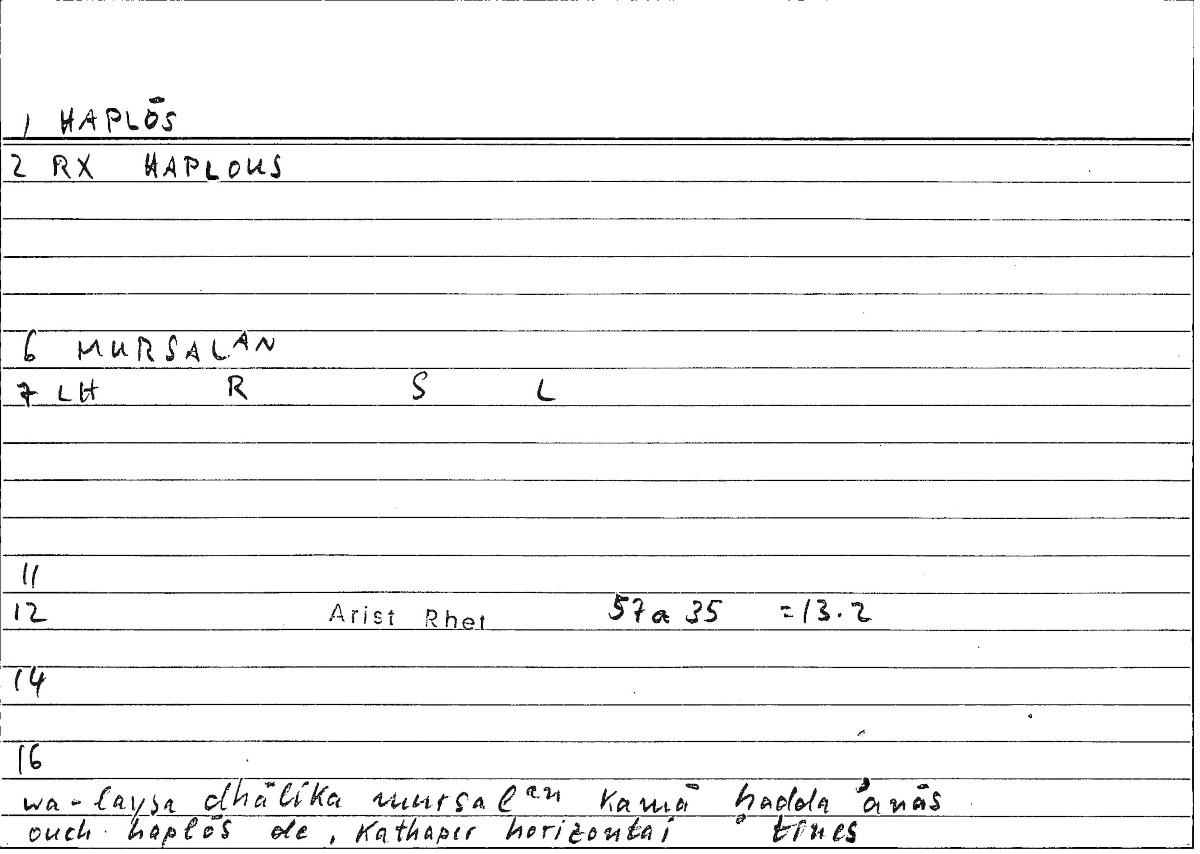 1 HAPLŌS
2 RX HAPLOUS
6 MURSALAN
7 LH R S L
11
12 Arist Rhet 57a35 =13.2
14
16
wa-laysa dhālika mursalan kamā ḥadda 'anās
ouch haplōs de, kathaper horizontai tines